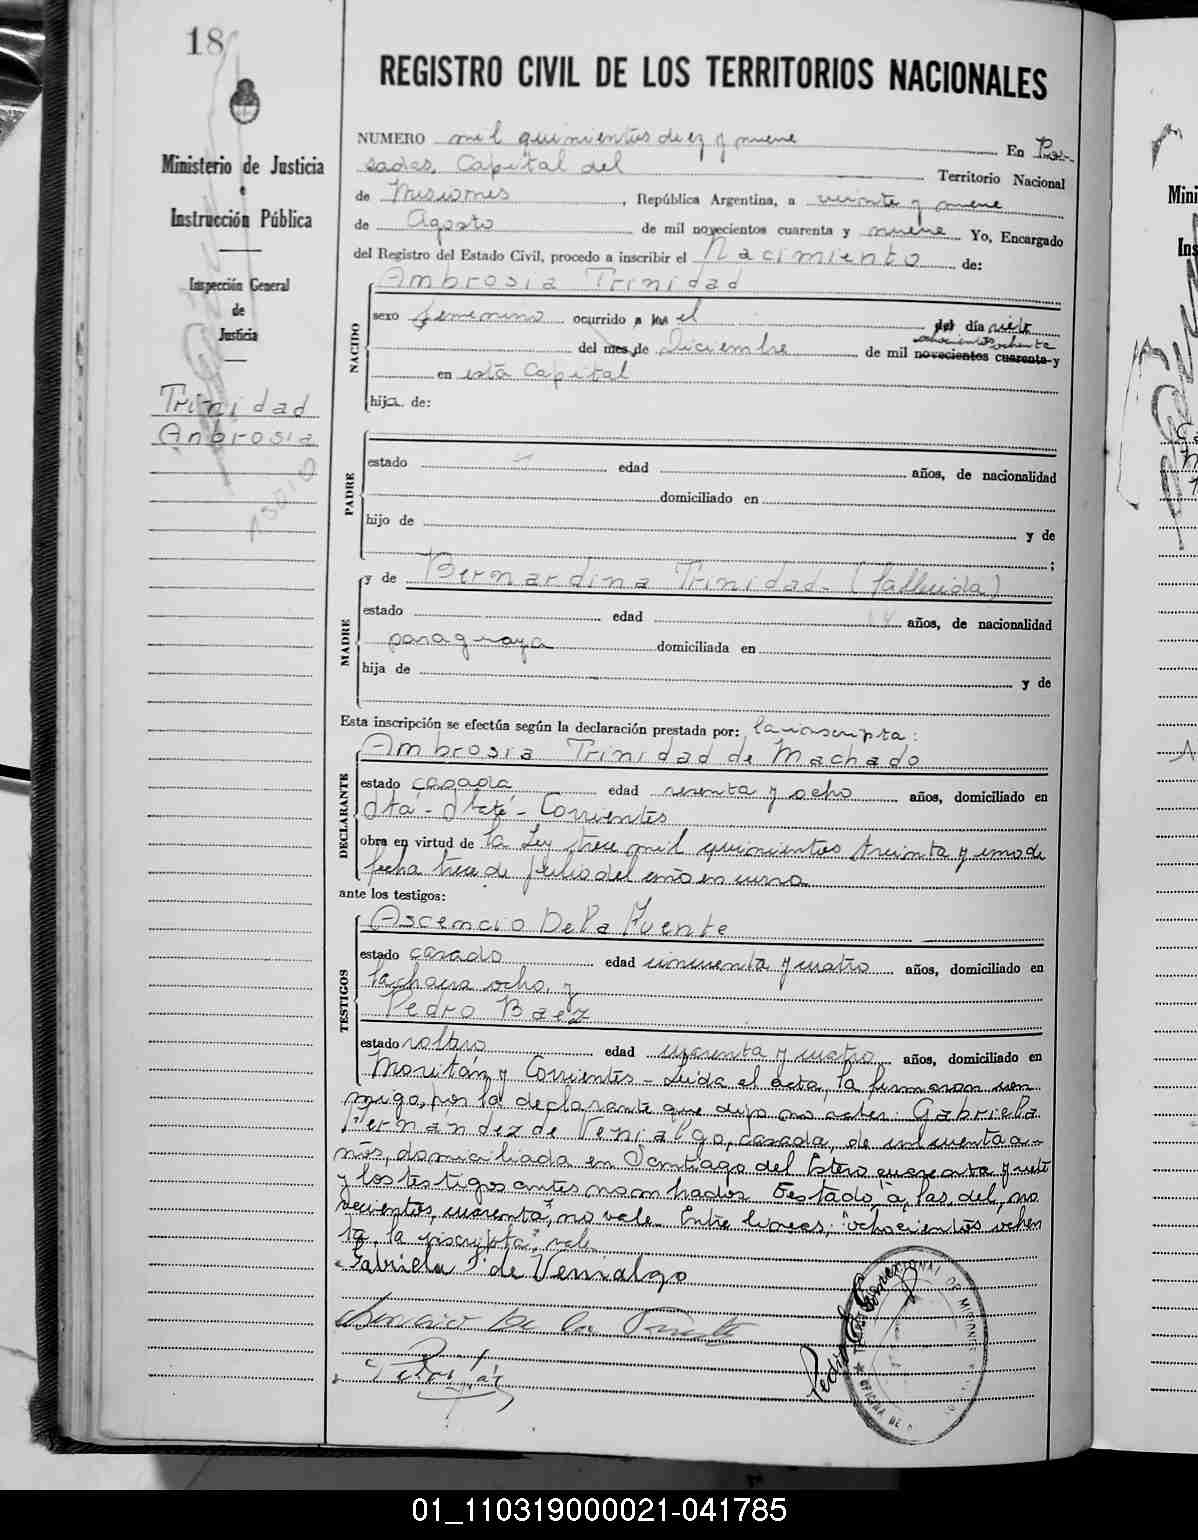 18
REGISTRO CIVIL DE LOS TERRITORIOS NACIONALES
Ministerio de Justicia
e
Instrucción Pública
Inspección General
de
Justicia
Trinidad
Ambrosia
NUMERO mil quinientos diez y nueve En Po-
sadas, Capital del Territorio Nacional
de Misiones, República Argentina, a veinte y nueve
de Agosto de mil novecientos cuarenta y nueve Yo, Encargado
del Registro del Estado Civil, procedo a inscribir el Nacimiento de:
NACIDO
Ambrosia Trinidad
sexo femenino ocurrido a las el del día siete
ochocientos ochenta
del mes de Diciembre de mil novecientos cuarenta y
en esta Capital
hija de:
PADRE
estado edad años, de nacionalidad
domiciliado en
hijo de y de
;
MADRE
y de Bernardina Trinidad - (fallecida)
estado edad años, de nacionalidad
paraguaya domiciliada en
hija de y de
Esta inscripción se efectúa según la declaración prestada por: la inscripta:
DECLARANTE
Ambrosia Trinidad de Machado
estado casada edad sesenta y ocho años, domiciliado en
Itá - Ibaté - Corrientes
obra en virtud de la Ley trece mil quinientos treinta y uno de
fecha trece de julio del año en curso
ante los testigos:
TESTIGOS
Ascencio De la Fuente
estado casado edad cincuenta y cuatro años, domiciliado en
la chacra ocho, y
Pedro Baez
estado soltero edad cuarenta y cuatro años, domiciliado en
Moritan y Corrientes - Leída el acta, la firmaron con
migo, por la declarante que dijo no saber: Gabriela
Fernández de Venialgo, casada, de cincuenta a-
ños, domiciliada en Santiago del Estero cuarenta y siete
y los testigos antes nombrados. Testado, "a, las, del, no
vecientos, cuarenta", no vale. Entre líneas; "ochocientos ochen
ta, la inscripta", vale.
Gabriela F. de Venialgo
Asencio De la Fuente
01_110319000021-041785